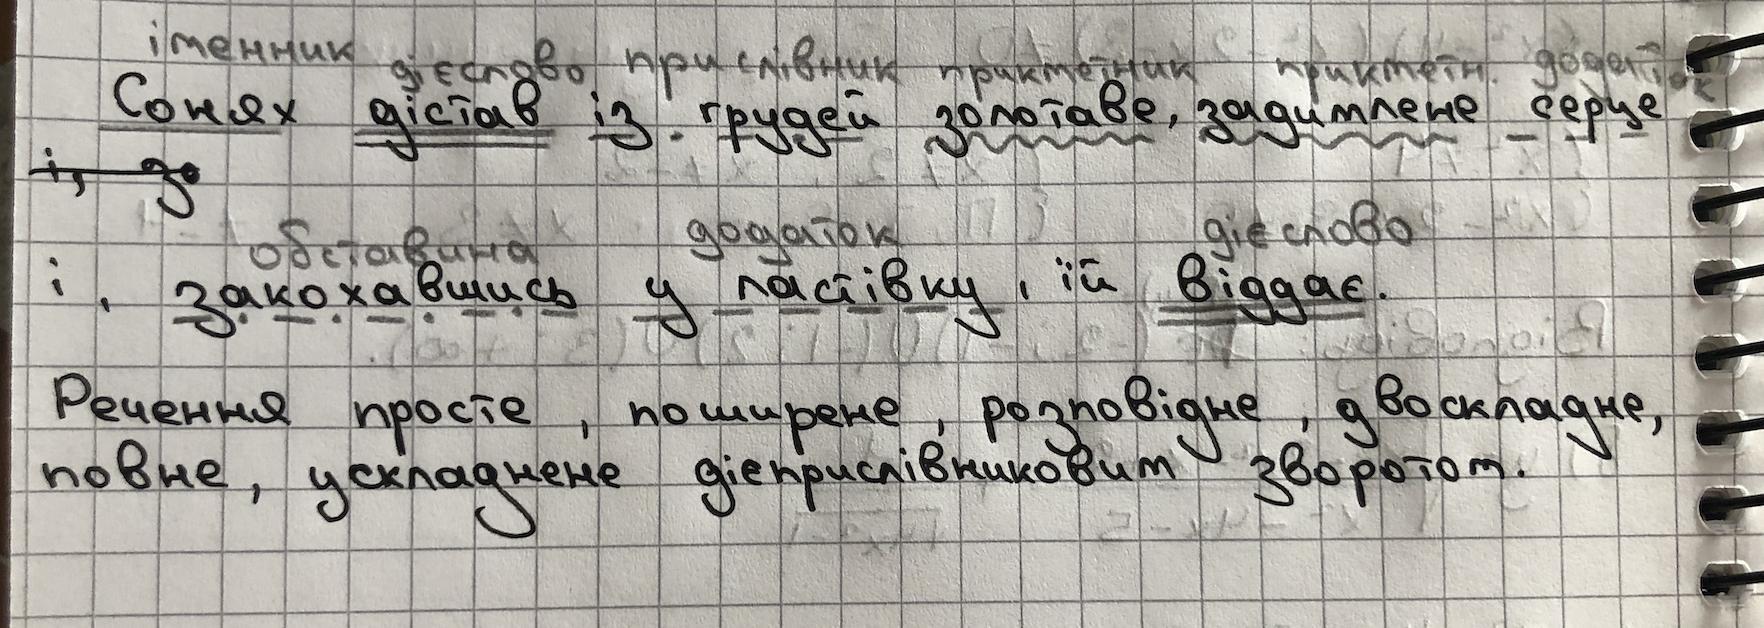 іменник дієслово прислівник прикметник прикметн. додаток
Сонях дістав із грудей золотаве, задимлене серце
і, зо
обставина додаток дієслово
і, закохавшись у ластівку, їй віддає.
Речення просте, поширене, розповідне, двоскладне,
повне, ускладнене дієприслівниковим зворотом.